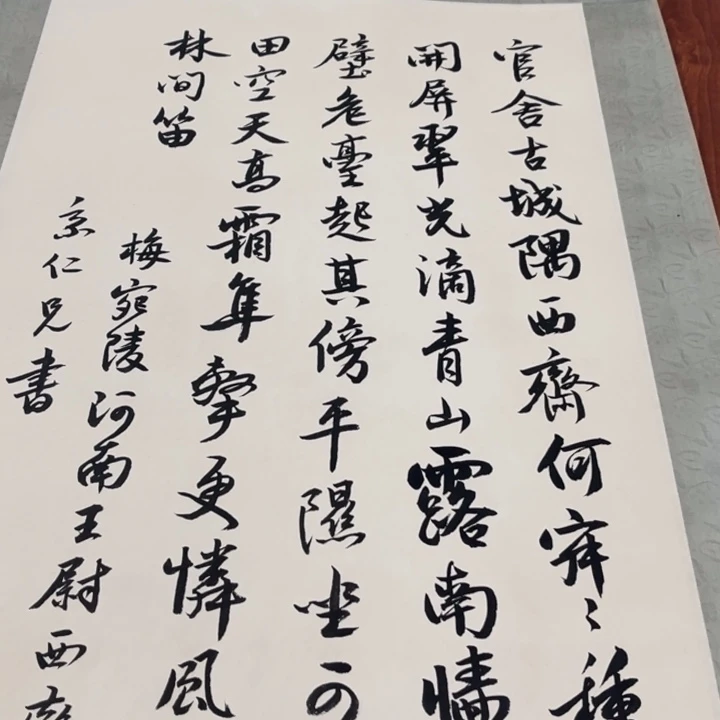 官舍古城隅西齋何寂〻種
開屏翠光滴青山露南牆
壁危臺起其傍平隰坐可
田空天高霜隼擊更憐風
林間笛
梅宛陵河南王尉西齋
仁兄書